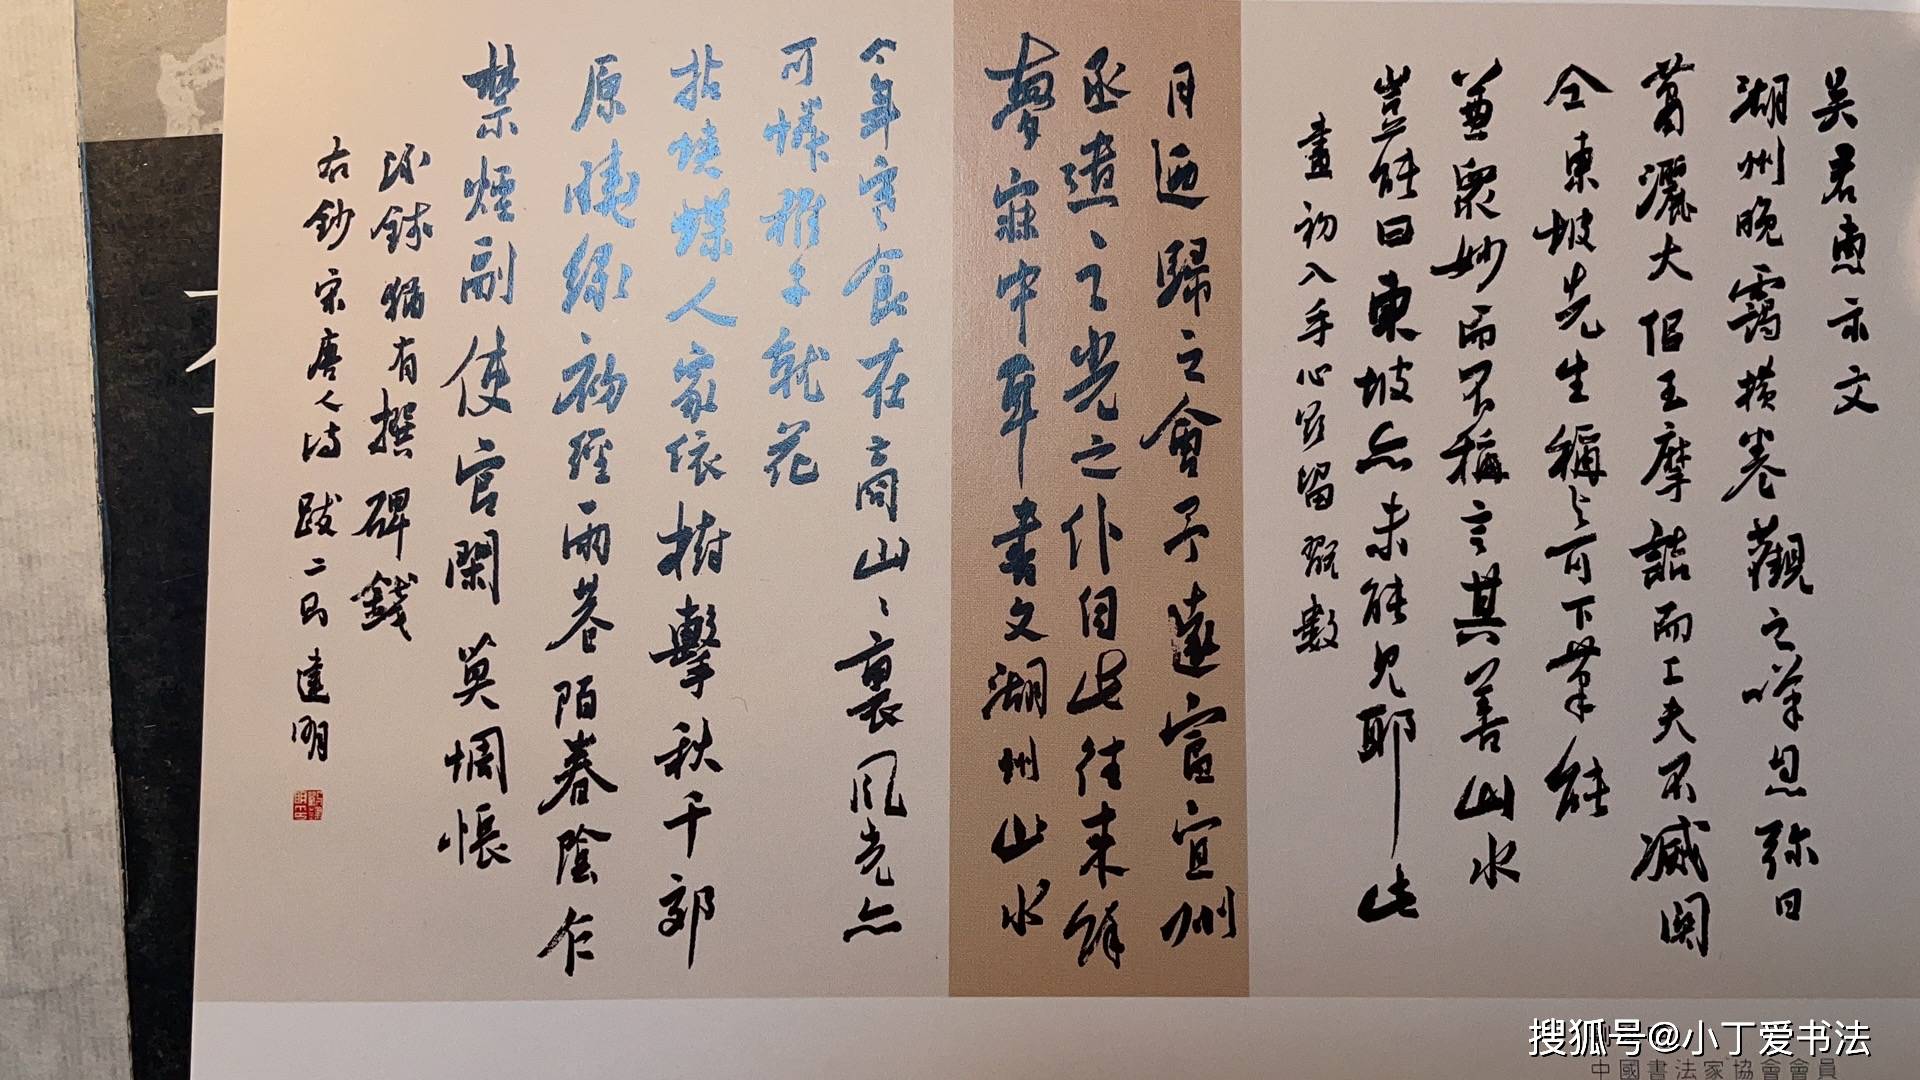 吴君惠示文
湖州晚靄橫卷觀之嘆息弥日
蕭灑大侣王摩詰而工夫不減関
仝東坡先生稱之百下筆能
兼衆妙而不稱言其善山水
豈能曰東坡亦未能見耶此
畫初入手心欲留翫數
月迺歸之會予遠宦宜州
亟遣之之光之仆自此往来餘
夢寐中耳書文湖州山水
今年寒食在商山山裏風光亦
可憐稚子就花
拈蛺蝶人家依樹擊秋千郊
原曉緑初經雨巷陌春陰乍
禁煙副使官閑莫惆悵
酒錢猶有撰碑錢
右鈔宋唐人詩跋二則達明
搜狐号@小丁爱书法
中國書法家協會會員